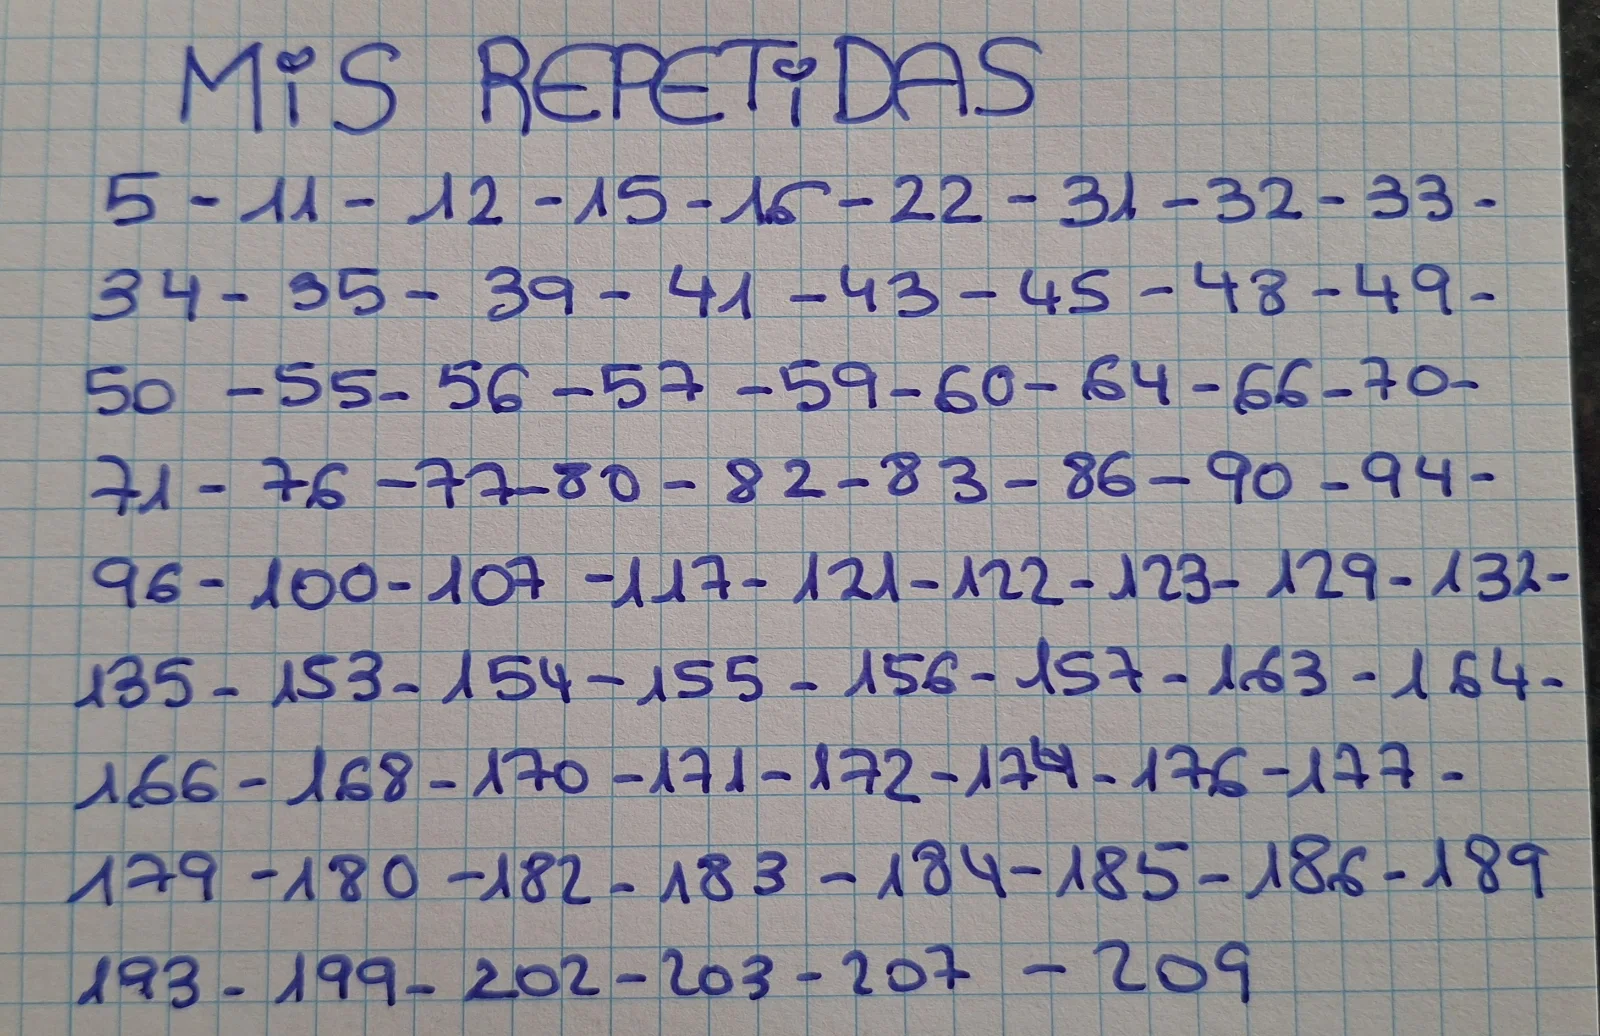 MiS REPETiDAS
5 - 11 - 12 - 15 - 16 - 22 - 31 - 32 - 33 -
34 - 35 - 39 - 41 - 43 - 45 - 48 - 49 -
50 - 55 - 56 - 57 - 59 - 60 - 64 - 66 - 70 -
71 - 76 - 77 - 80 - 82 - 83 - 86 - 90 - 94 -
96 - 100 - 107 - 117 - 121 - 122 - 123 - 129 - 132 -
135 - 153 - 154 - 155 - 156 - 157 - 163 - 164 -
166 - 168 - 170 - 171 - 172 - 174 - 176 - 177 -
179 - 180 - 182 - 183 - 184 - 185 - 186 - 189
193 - 199 - 202 - 203 - 207 - 209